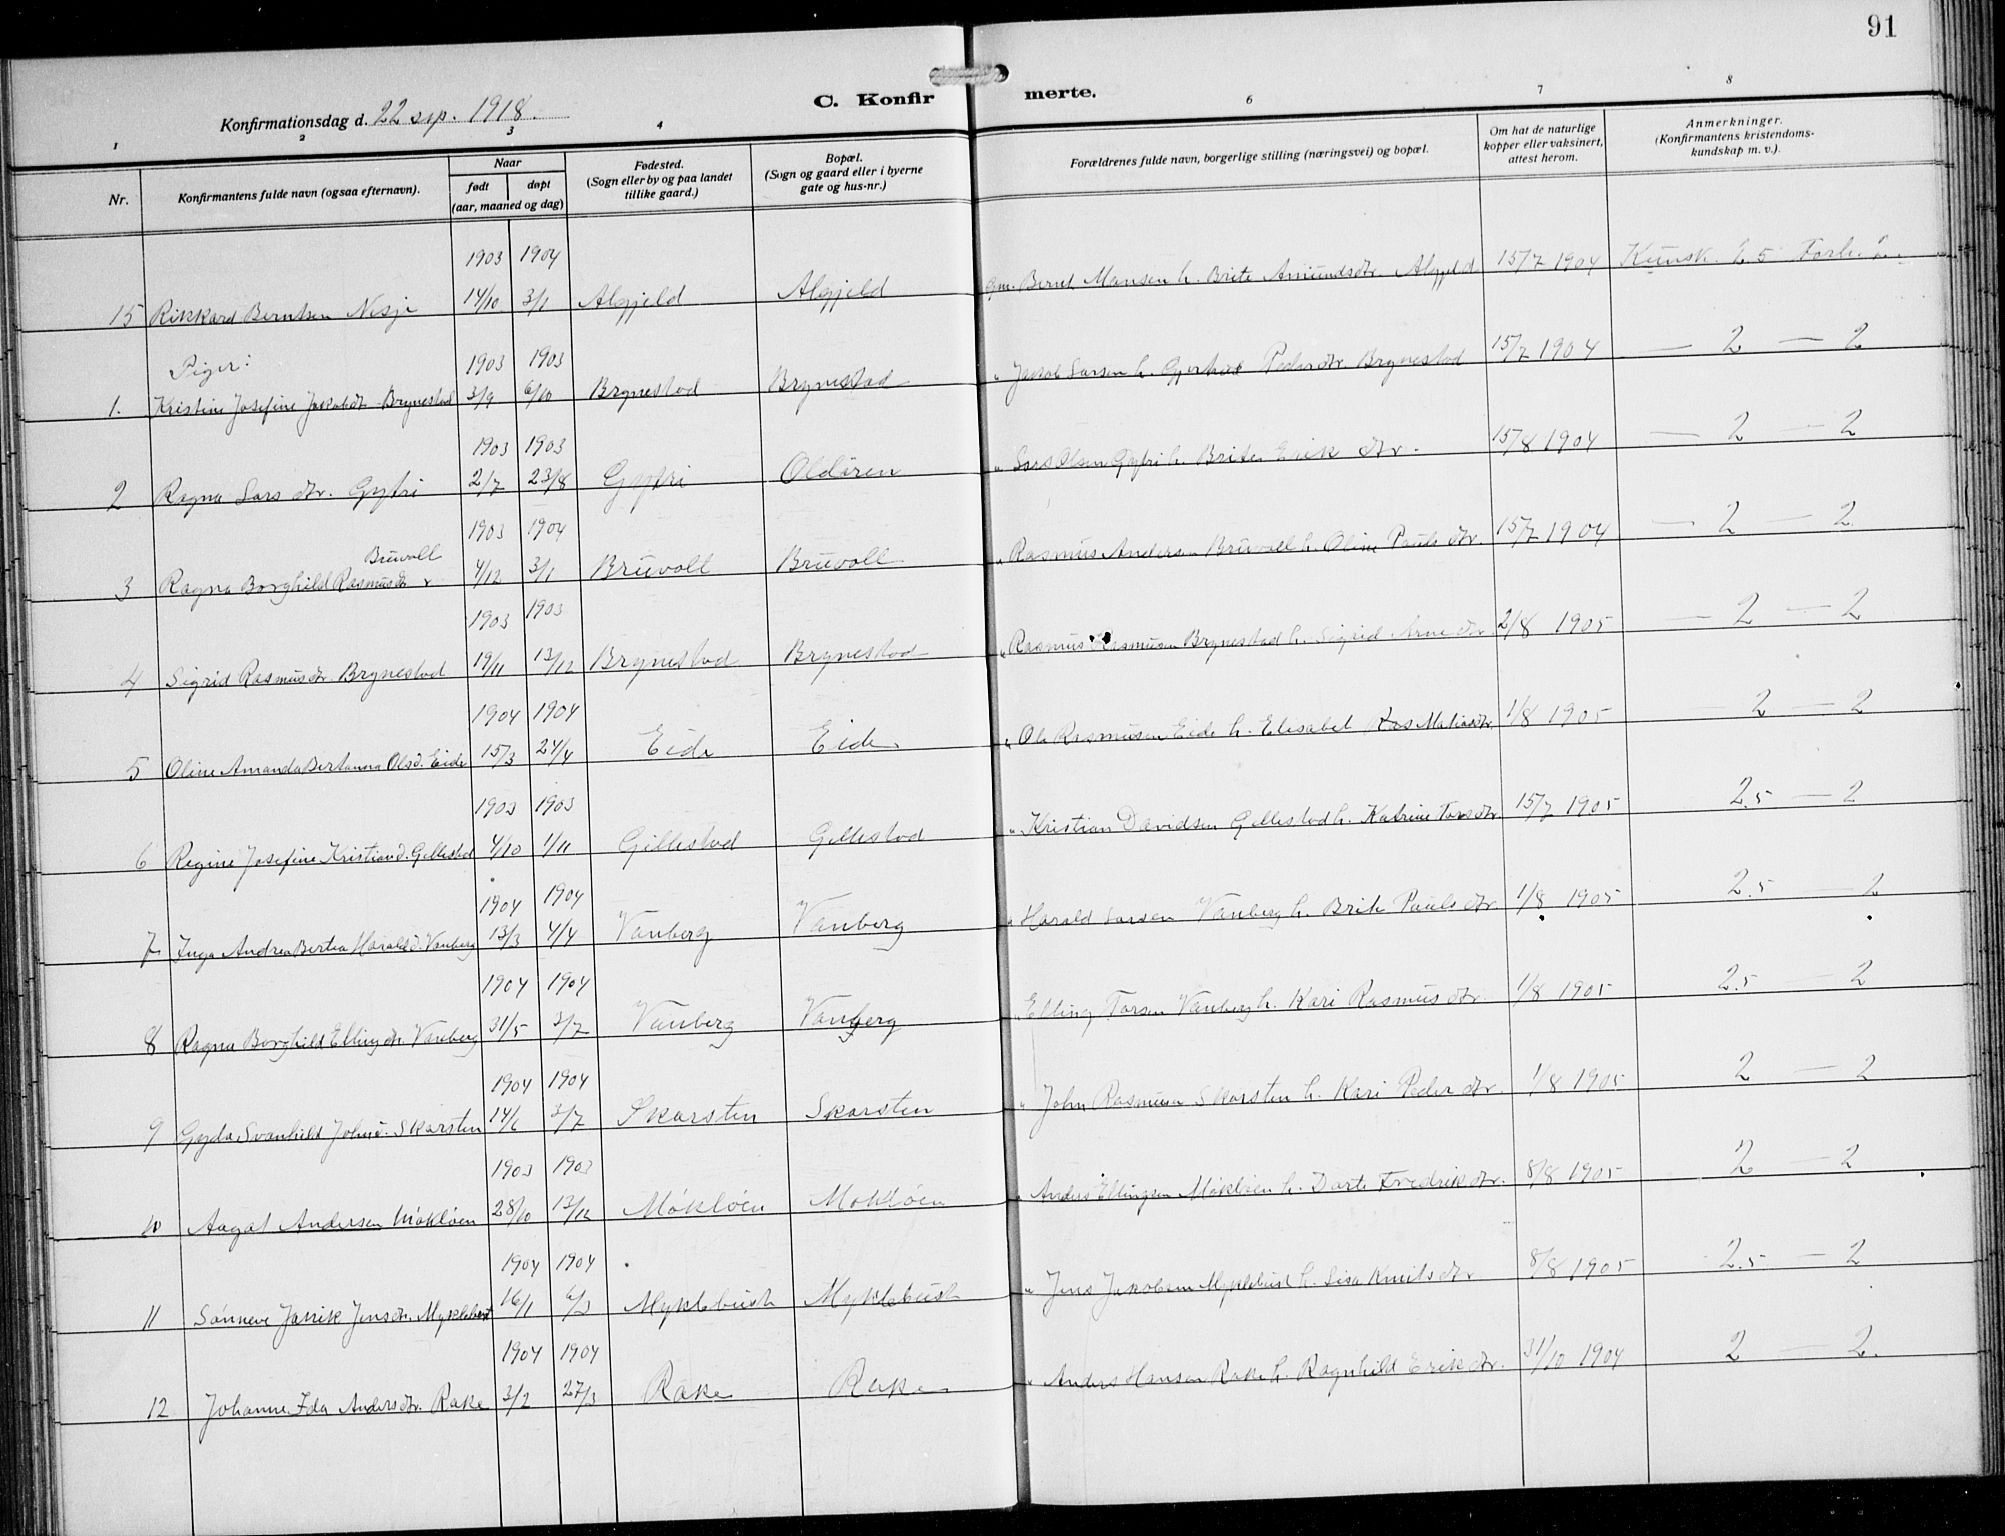 91
C. Konfirmerte.
Konfirmationsdag d. 22 sep. 1918.
1 2 3 4 6 7 8
Nr.
Konfirmantens fulde navn (ogsaa efternavn).
Naar
født døpt
(aar, maaned og dag)
Fødested.
(Sogn eller by og paa landet
tillike gaard.)
Bopæl.
(Sogn og gaard eller i byerne
gate og hus-nr.)
Forældrenes fulde navn, borgerlige stilling (næringsvei) og bopæl.
Om hat de naturlige
kopper eller vaksinert,
attest herom.
Anmerkninger.
(Konfirmantens kristendoms-
kundskap m. v.).
1903 1904
15 Rikkard Berntsen Nesje 14/10 3/1 Algjeld Algjeld Gm. Bernt Monsen h. Brite Amundsdtr. 15/7 1904 Kunsk. 2.5 Forh.
Piger:
1903 1903
1. Kristine Josefine Jakobdtr Brynestad 3/9 6/10 Brynestad Brynestad " Jakob Larsen h. Pedersdtr. Brynestad 15/7 1904 — 2 — 2
1903 1903
2 Ragna Larsdtr. Gytri 2/7 23/8 Gytri Oldören " Lars Olsen Gytri h. Brite Erikdtr. 15/8 1904 — 2 — 2
1903 1904
Bruvoll
3 Ragna Borghild Rasmusdtr 4/12 3/1 Bruvoll Bruvoll " Rasmus Andersen Bruvoll h. Oline Paulsdtr. 15/7 1904 — 2 — 2
1903 1903
4 Sigrid Rasmusdtr. Brynestad 19/11 13/12 Brynestad Brynestad " Rasmus Rasmusen Brynestad h. Sigrid Arnedtr 2/8 1905 — 2 — 2
1904 1904
5 Oline Amanda Bertanna Olsd. Eide 15/3 24/4 Eide Eide " Ole Rasmusen Eide h. Elesabet Ras Matiasdtr. 1/8 1905 — 2 — 2
1903 1903
6 Regine Josefine Kristiand. Gillestad 4/10 1/11 Gillestad Gillestad " Kristian Davidsen Gillestad h. Katrine Torsdtr. 15/7 1905 2.5 — 2
1904 1904
7 Inga Andrea Bertea Haraldsd. Vanberg 13/3 4/4 Vanberg Vanberg " Harald Larsen Vanberg h. Brite Paulsdtr. 1/8 1905 2.5 — 2
1904 1904
8 Ragna Borghild Ellingdtr. Vanberg 31/5 3/7 Vanberg Vanberg " Elling Torsen Vanberg h. Kari Rasmusdtr. 1/8 1905 2.5 — 2
1904 1904
9 Gyda Svanhild Johnsd. Skarsten 14/6 3/7 Skarsten Skarsten " John Rasmusen Skarsten h. Kari Pederdtr. 1/8 1905 2 — 2
1903 1903
10 Aagot Andersen Mökløen 28/10 13/12 Mökløen Mökløen " Anders Ellingsen Mökløen h. Dorte Fredrikdtr. 8/8 1905 2 — 2
1904 1904
11 Sönneve Jensdtr. Myklebust 16/1 6/3 Myklebust Myklebust " Jens Jakobsen Myklebust h. Lisa Knutsdtr 8/8 1905 2.5 — 2
1904 1904
12 Johanne Ida Andersdtr. Rake 3/2 27/3 Rake Rake " Anders Hansen Rake h. Ragnhild Erikdtr. 31/10 1904 2 — 2.